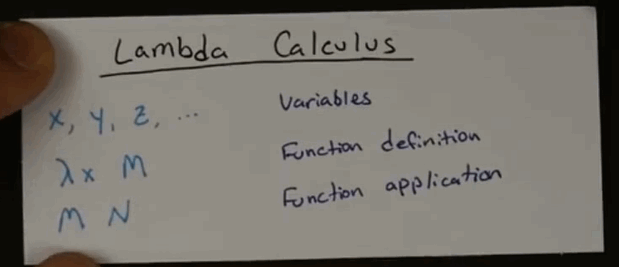 Lambda Calculus
x, y, z, ... Variables
λx M Function definition
M N Function application